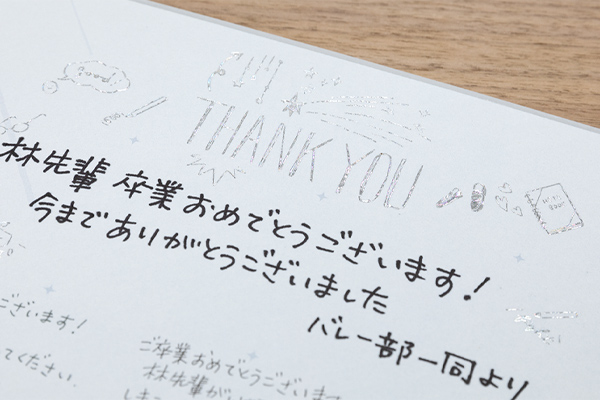 THANK YOU
林先輩 卒業おめでとうございます!
今までありがとうございました
バレー部一同より
ございます!
てください。
ご卒業おめでとうございます
林先輩が